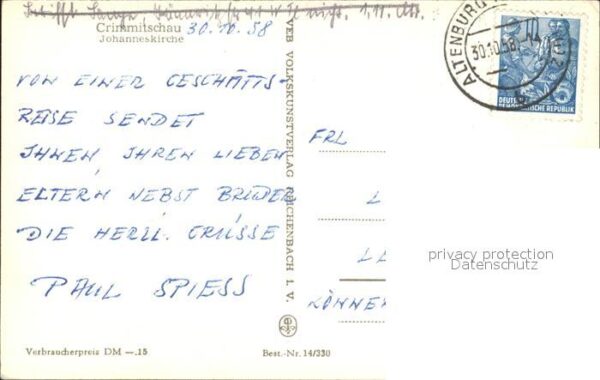 Crimmitschau
Johanneskirche
30.10.58
VON EINER GESCHÄFTS-
REISE SENDET
IHNEN, IHREN LIEBEN
ELTERN NEBST BRUDER
DIE HERZL. GRÜSSE
PAUL SPIESS
VEB VOLKSKUNSTVERLAG REICHENBACH I. V.
ALTENBURG
30.10.58
DEUTSCHE
DEMOKRATISCHE REPUBLIK
FRL
L
L
KÖNNE
privacy protection
Datenschutz
Verbraucherpreis DM —.15
Best.-Nr. 14/330